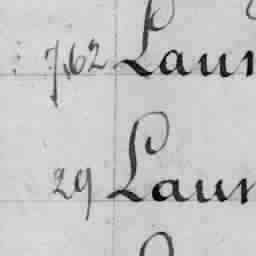 762 Laur
29 Laur